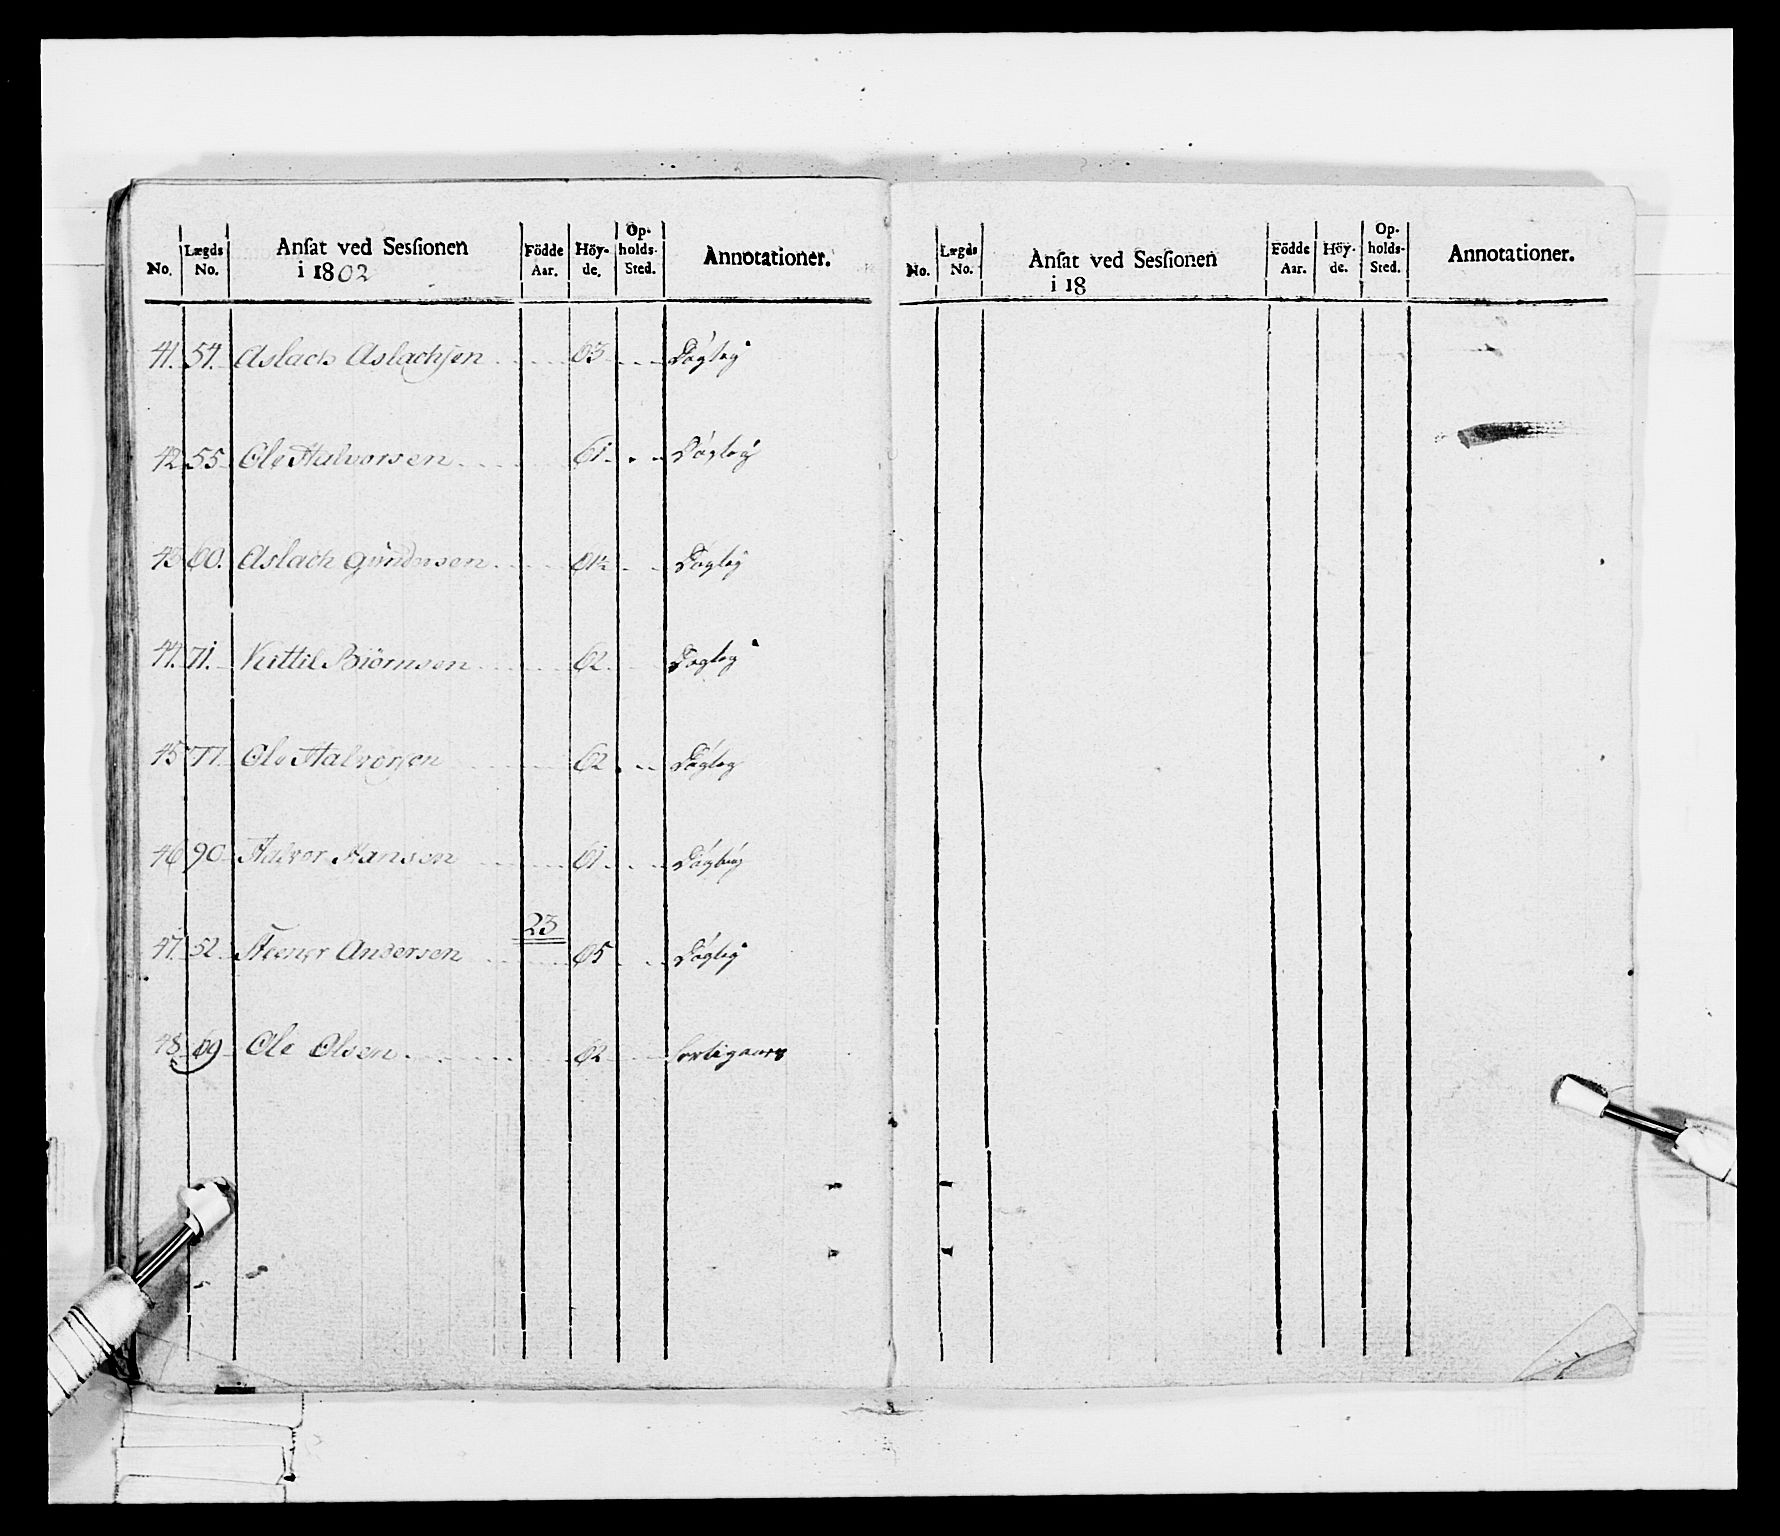 No. Lægds No. Ansat ved Sessionen i 1802 Födde Aar. Höyde. Opholds-Sted. Annotationer.
41. 54. Aslach Aslachsen 63 Døgtig
42 55 Ole Halvorsen 61 Døgtig
43 60. Aslach Gundersen 61½ Døgtig
44. 71. Kittil Biörnsen 62 Døgtig
45 77 Ole Halvorsen 62 Døgtig
46 90 Halvor Hansen 61 Døgtig
23
47 52 Andersen 65 Døgtig
48 69 Ole Olsen 62
No. Lægds No. Ansat ved Sessionen i 18 Födde Aar. Höyde. Opholds-Sted. Annotationer.